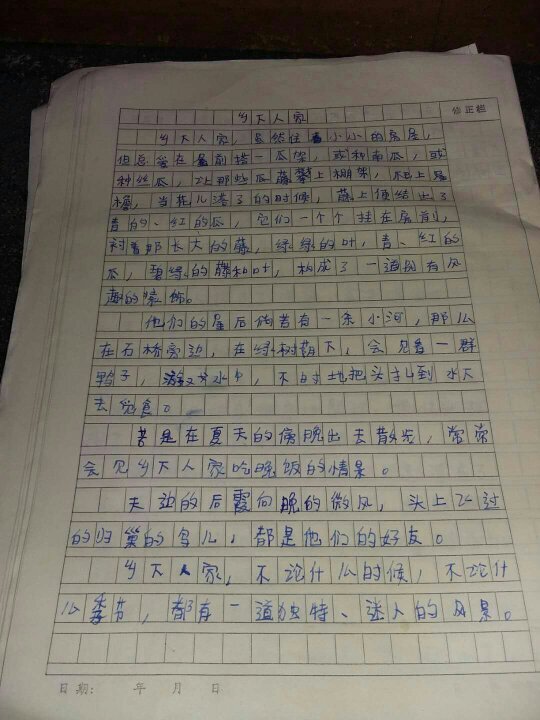 乡下人家
修正栏
乡下人家，虽然住着小小的房屋，
但总爱在屋前搭一瓜架，或种南瓜，或
种丝瓜，让那些瓜藤攀上棚架，爬上屋
檐，当花儿落了的时候，藤上便结出了
青的、红的瓜，它们一个个挂在房前，
衬着那长长的藤，绿绿的叶，青、红的
瓜，碧绿的藤和叶，构成了一道别有风
趣的装饰。
他们的屋后倘若有一条小河，那么
在石桥旁边，在绿树荫下，会见着一群
鸭子，游戏水中，不时地把头扎到水下
去觅食。
若是在夏天的傍晚出去散步，常常
会见乡下人家吃晚饭的情景。
天边的后霞向晚的微风，头上飞过
的归巢的鸟儿，都是他们的好友。
乡下人家，不论什么的时候，不论什
么季节，都有一道独特、迷人的风景。
日期： 年 月 日